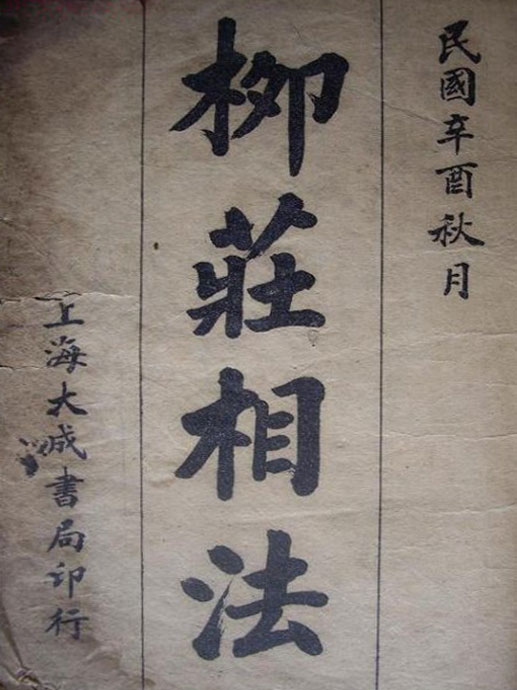 民國辛酉秋月
柳莊相法
上海大成書局印行